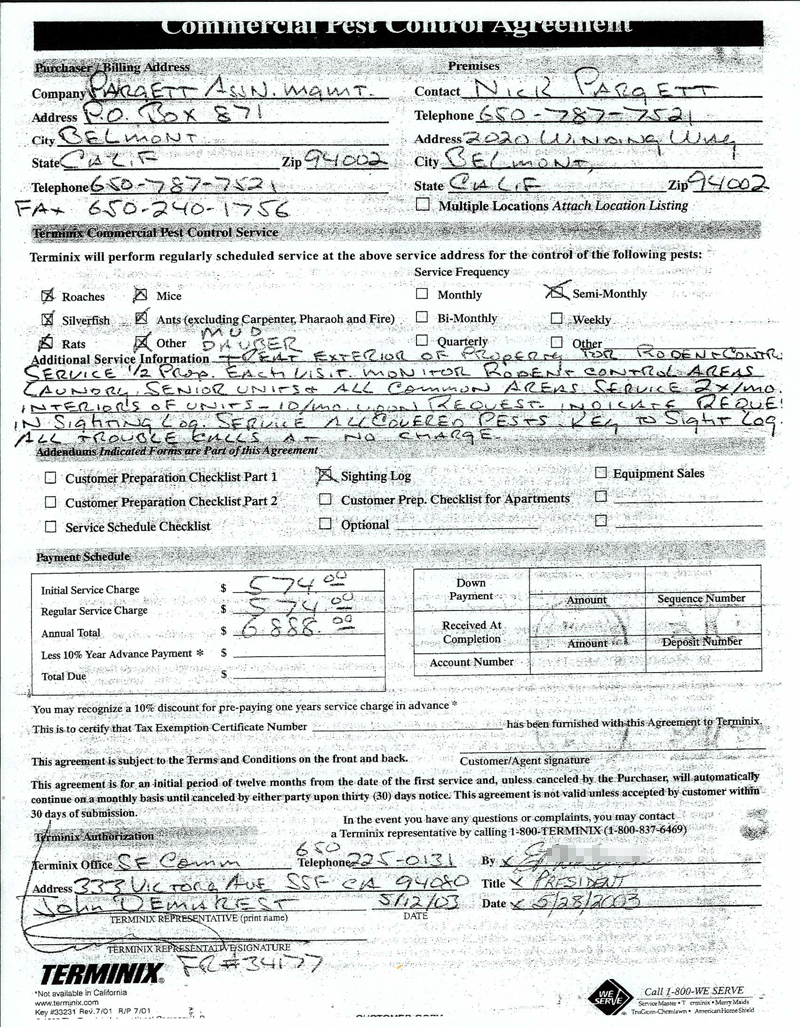 Commercial Pest Control Agreement
Purchaser / Billing Address
Premises
Company PARGETT ASSN. MGMT.
Contact NICK PARGETT
Address P.O. BOX 871
Telephone 650-787-7521
City BELMONT
Address 2020 WINDING WAY
State CALIF Zip 94002
City BELMONT,
Telephone 650-787-7521
State CALIF Zip 94002
FAX 650-240-1756
Multiple Locations Attach Location Listing
Terminix Commercial Pest Control Service
Terminix will perform regularly scheduled service at the above service address for the control of the following pests:
Service Frequency
Roaches Mice Monthly Semi-Monthly
Silverfish Ants (excluding Carpenter, Pharaoh and Fire) Bi-Monthly Weekly
Rats Other MUD DAUBER Quarterly Other
Additional Service Information TREAT EXTERIOR OF PROPERTY FOR RODENT CONTR
SERVICE 1/2 PROP. EACH VISIT. MONITOR RODENT CONTROL AREAS
LAUNDRY, SENIOR UNITS & ALL COMMON AREAS. SERVICE 2X/MO.
INTERIORS OF UNITS - 10/MO. UPON REQUEST. INDICATE REQUE
IN SIGHTING LOG. SERVICE ALL COVERED PESTS KEY TO SIGHT LOG.
ALL TROUBLE CALLS AT NO CHARGE.
Addendums Indicated Forms are Part of this Agreement
Customer Preparation Checklist Part 1 Sighting Log Equipment Sales
Customer Preparation Checklist Part 2 Customer Prep. Checklist for Apartments
Service Schedule Checklist Optional
Payment Schedule
Initial Service Charge $ 574.00
Regular Service Charge $ 574.00
Annual Total $ 6888.00
Less 10% Year Advance Payment * $
Total Due $
Down Payment Amount Sequence Number
Received At Completion Amount Deposit Number
Account Number
You may recognize a 10% discount for pre-paying one years service charge in advance *
This is to certify that Tax Exemption Certificate Number has been furnished with this Agreement to Terminix.
This agreement is subject to the Terms and Conditions on the front and back.
Customer/Agent signature
This agreement is for an initial period of twelve months from the date of the first service and, unless canceled by the Purchaser, will automatically
continue on a monthly basis until canceled by either party upon thirty (30) days notice. This agreement is not valid unless accepted by customer within
30 days of submission.
In the event you have any questions or complaints, you may contact
a Terminix representative by calling 1-800-TERMINIX (1-800-837-6469)
Terminix Authorization
Terminix Office SF Comm Telephone 650 225-0131 By X
Address 333 VICTORY AVE SSF CA 94080 Title X PRESIDENT
John DEMAREST 5/12/03 Date X 5/28/2003
TERMINIX REPRESENTATIVE (print name) DATE
TERMINIX REPRESENTATIVE/SIGNATURE
FR#34177
TERMINIX
*Not available in California
www.terminix.com
Key #33231 Rev.7/01 R/P 7/01
WE SERVE
Call 1-800-WE SERVE
ServiceMaster • Terminix • Merry Maids
TruGreen-ChemLawn • American Home Shield
CUSTOMER COPY